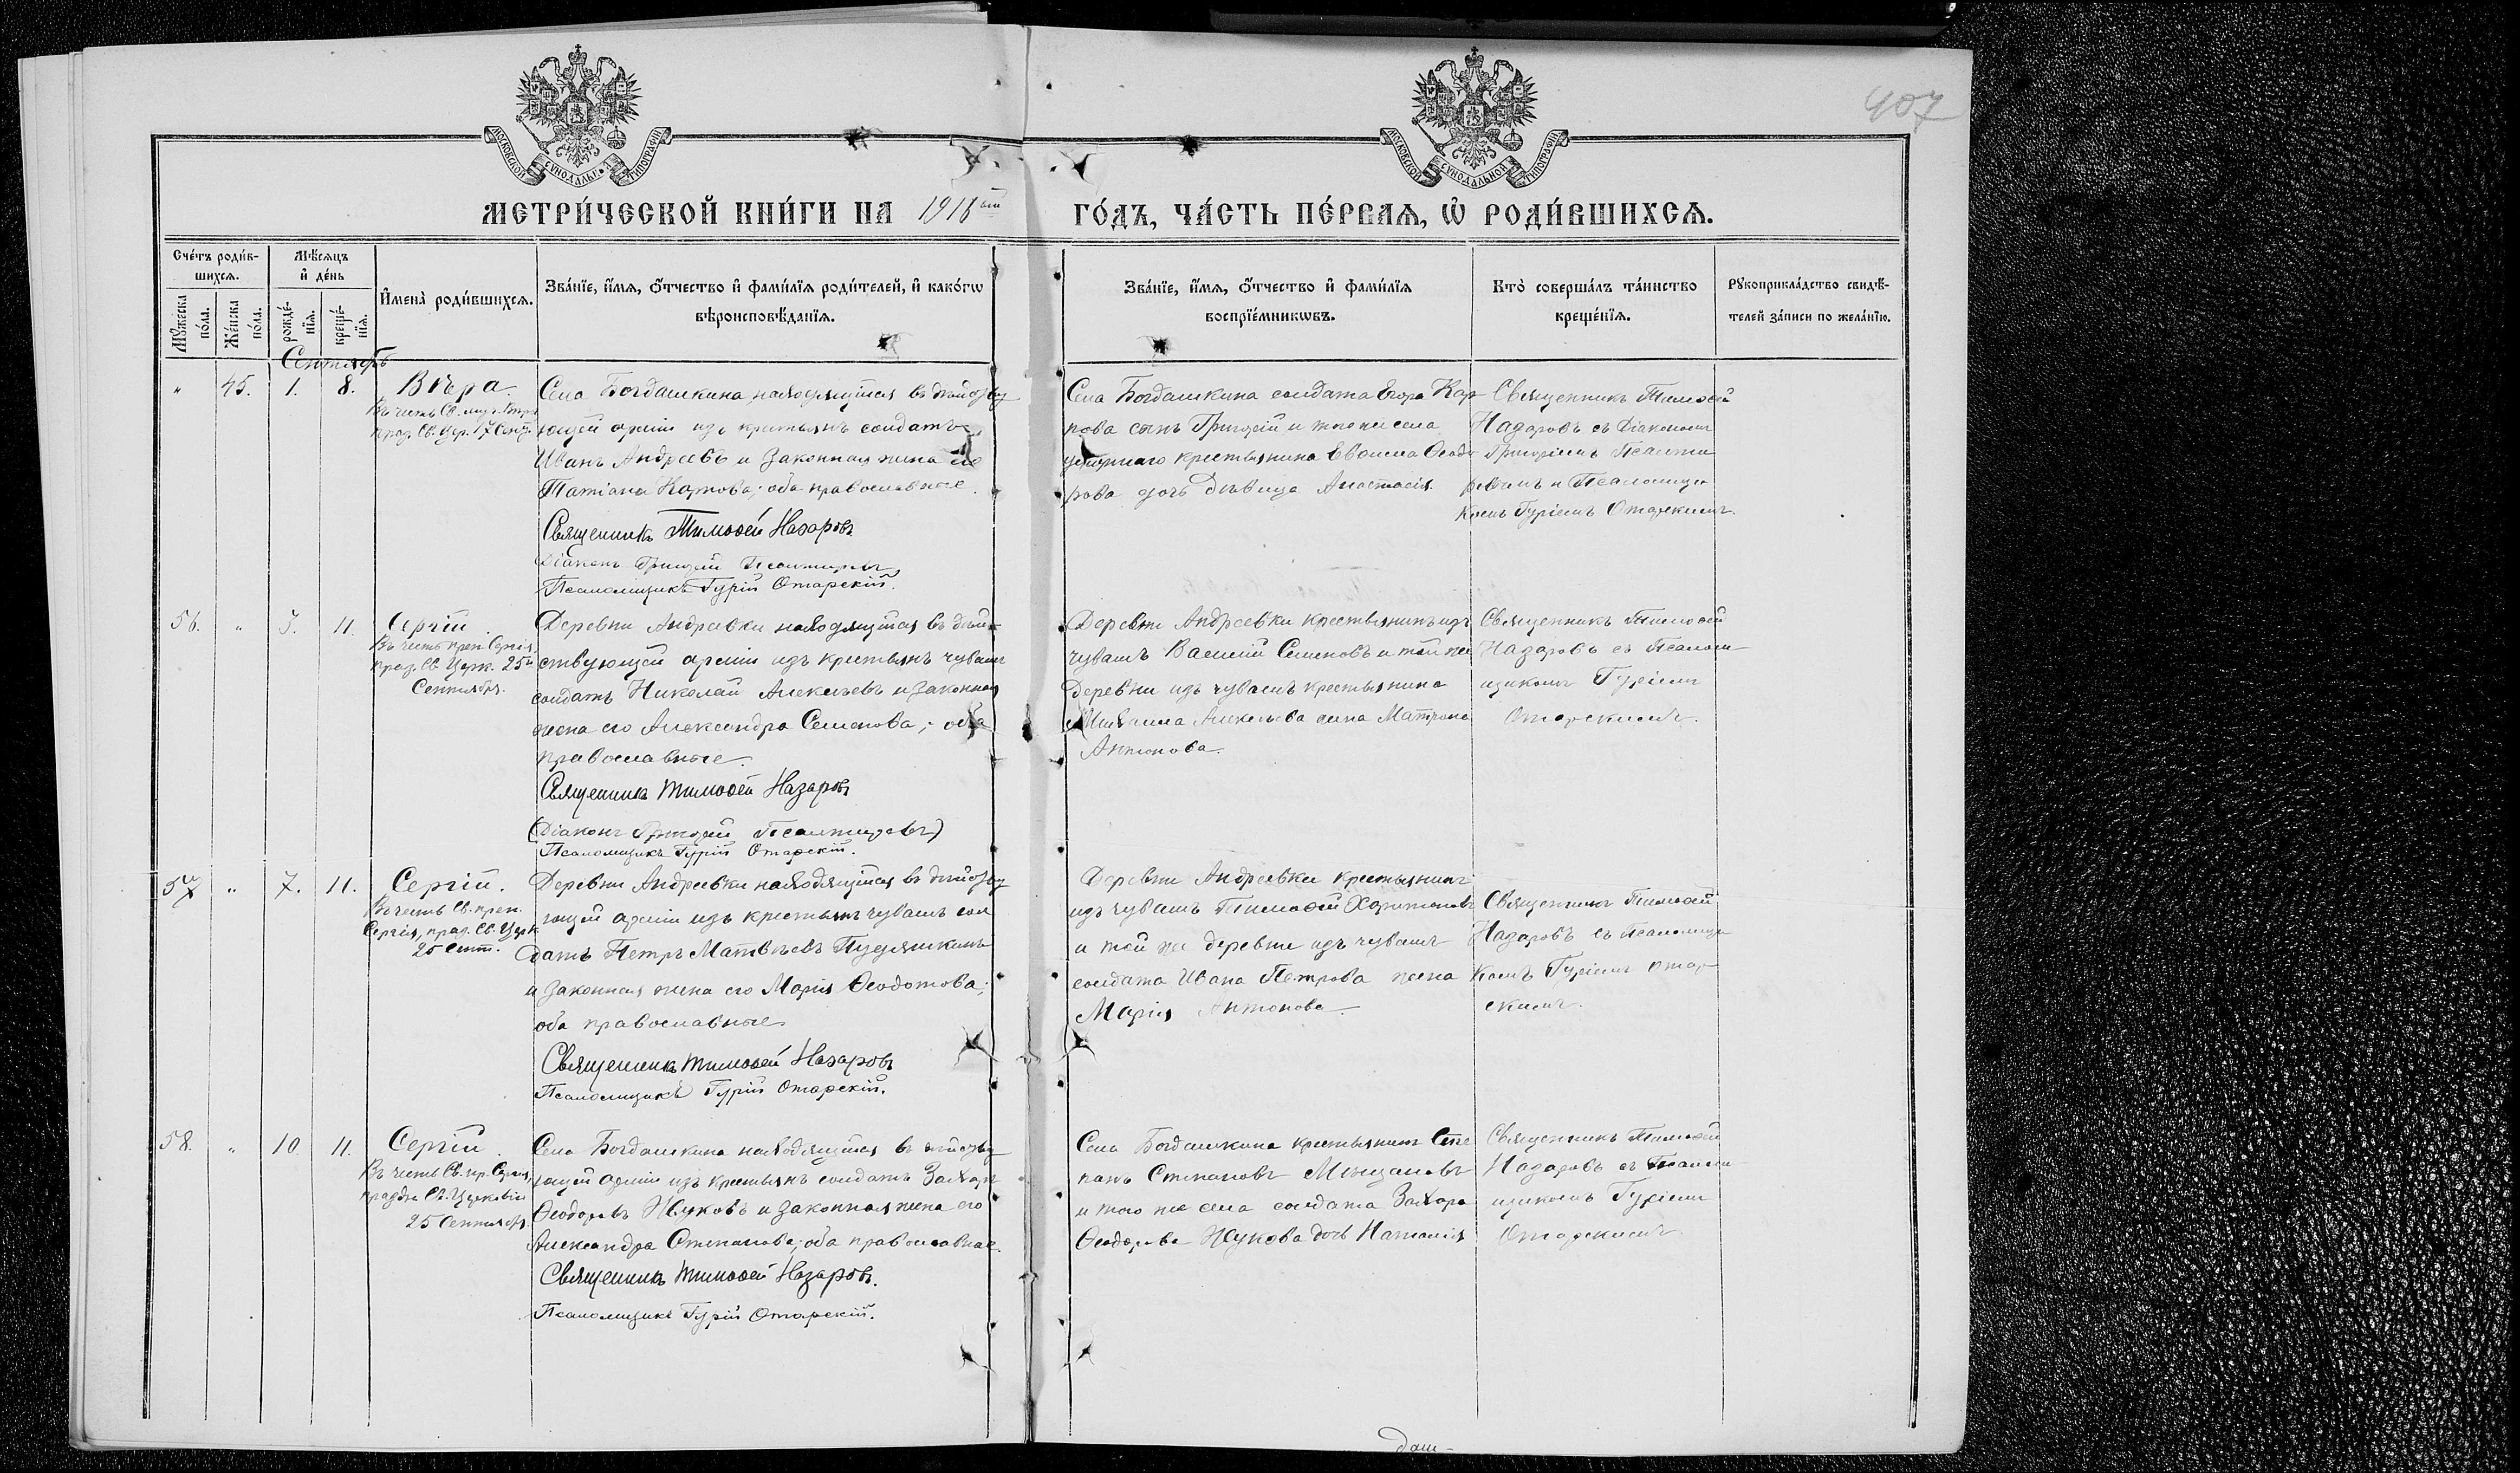 407
МОСКОВСКОЙ СУНОДАЛЬНОЙ ТИПОГРАФІИ
МОСКОВСКОЙ СУНОДАЛЬНОЙ ТИПОГРАФІИ
МЕТРИ́ЧЕСКОЙ КНИ́ГИ НА 1916 ый ГО́ДЪ, ЧА́СТЬ ПЕ́РВАЯ, Ѡ РОДИ́ВШИХСЯ.
Сче́тъ роди́в-
шихся.
Мꙋжеска по́ла.
Же́нска по́ла.
Мѣ́сяцъ
и҆ де́нь
рожде́-
нїя.
креще́-
нїя.
И҆мена̀ роди́вшихся.
Зва́нїе, и҆́мя, ѻ҆́тчество и҆ фами́лїя роди́телей, и҆ како́гѡ
вѣроисповѣ́данїя.
Зва́нїе, и҆́мя, ѻ҆́тчество и҆ фами́лїя
воспрїе́мникѡвъ.
Кто̀ соверша́лъ та́инство
креще́нїя.
Рꙋкоприкла́дство свидѣ́-
телей за́писи по жела́нїю.
Сентябрь
" 45. 1. 8. Вѣра.
Въ честь Св. муч. Вѣры
празд. Св. Цер. 17 Сент.
Села Богдашкина находящійся въ дѣйству
ющей арміи изъ крестьянъ солдатъ
Иванъ Андреевъ и законная жена его
Татіана Карпова; оба православные.
Священникъ Тимоѳей Назаровъ
Діаконъ Григорій Псалтировъ
Псаломщикъ Гурій Отарскій.
Села Богдашкина солдата Егора Кар
пова сынъ Григорій и того же села
умершаго крестьянина Евѳима Ѳеодо
рова дочь дѣвица Анастасія.
Священникъ Тимоѳей
Назаровъ съ Діакономъ
Григоріемъ Псалти
ровымъ и Псаломщи
комъ Гуріемъ Отарскимъ.
56. " 5. 11. Сергій.
Въ честь преп. Сергія,
празд. Св. Церк. 25 го
Сентября.
Деревни Андреевки находящійся въ дѣй-
ствующей арміи изъ крестьянъ чувашъ
солдатъ Николай Алексѣевъ и законная
жена его Александра Семенова; оба
православные.
Священникъ Тимоѳей Назаровъ
(Діаконъ Григорій Псалтировъ)
Псаломщикъ Гурій Отарскій.
Деревни Андреевки крестьянинъ изъ
чувашъ Василій Семеновъ и той же
деревни изъ чувашъ крестьянина
Михаила Алексѣева жена Матрона
Антонова.
Священникъ Тимоѳей
Назаровъ съ Псалом-
щикомъ Гуріемъ
Отарскимъ.
57 " 7. 11. Сергій.
Въ честь Св. преп.
Сергія, празд. Св. Церк
25 Сент.
Деревни Андреевки находящійся въ дѣйству
ющей арміи изъ крестьянъ чувашъ сол
датъ Петръ Матвѣевъ
и законная жена его Марія Ѳеодотова;
оба православные.
Священникъ Тимоѳей Назаровъ
Псаломщикъ Гурій Отарскій.
Деревни Андреевки крестьянинъ
изъ чувашъ Тимоѳей Харитоновъ
и той же деревни изъ чувашъ
солдата Ивана Петрова жена
Марія Антонова.
Священникъ Тимоѳей
Назаровъ съ Псаломщи
комъ Гуріемъ Отар-
скимъ.
58. " 10 11. Сергій.
Въ честь Св. пр. Сергія,
празд. Св. Церковію
25 Сентября.
Села Богдашкина находящійся въ дѣйству
ющей арміи изъ крестьянъ солдатъ Захаръ
Ѳеодоровъ Жуковъ и законная жена его
Александра Степанова; оба православные.
Священникъ Тимоѳей Назаровъ.
Псаломщикъ Гурій Отарскій.
Села Богдашкина крестьянинъ Сте
панъ Степановъ
и того же села солдата Захара
Ѳеодорова Жукова дочь Наталія
Священникъ Тимоѳей
Назаровъ съ Псалом-
щикомъ Гуріемъ
Отарскимъ.